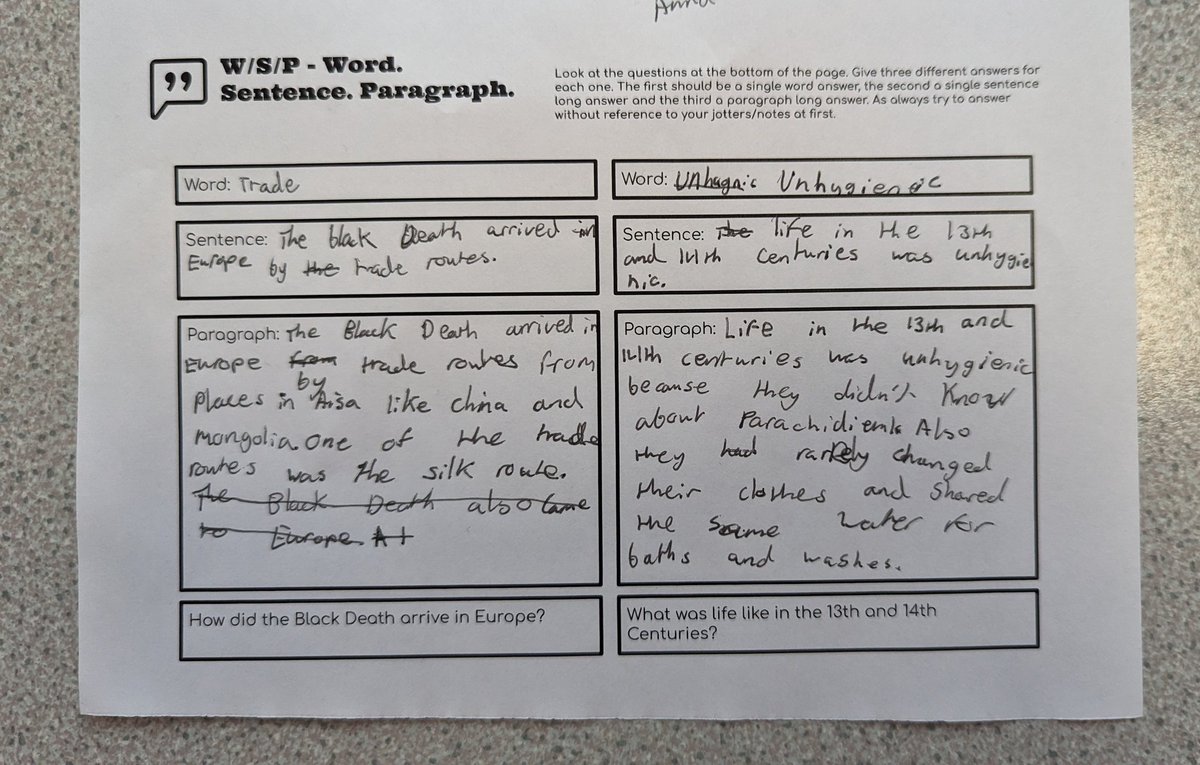 Anna
W/S/P - Word.
Sentence. Paragraph.
Look at the questions at the bottom of the page. Give three different answers for
each one. The first should be a single word answer, the second a single sentence
long answer and the third a paragraph long answer. As always try to answer
without reference to your jotters/notes at first.
Word: Trade
Sentence: The black Death arrived in
Europe by the trade routes.
Paragraph: The Black Death arrived in
Europe from trade routes from
by
Places in Aisa like china and
Mongolia. One of the trade
routes was the silk route.
The Black Death also came
to Europe. At
How did the Black Death arrive in Europe?
Word: Unhygienic
Sentence: The life in the 13th
and 14th centuries was unhygie
nic.
Paragraph: Life in the 13th and
14th centuries was unhygienic
because they didn't Know
about Also
they had rarely changed
their clothes and shared
the same water for
baths and washes.
What was life like in the 13th and 14th
Centuries?